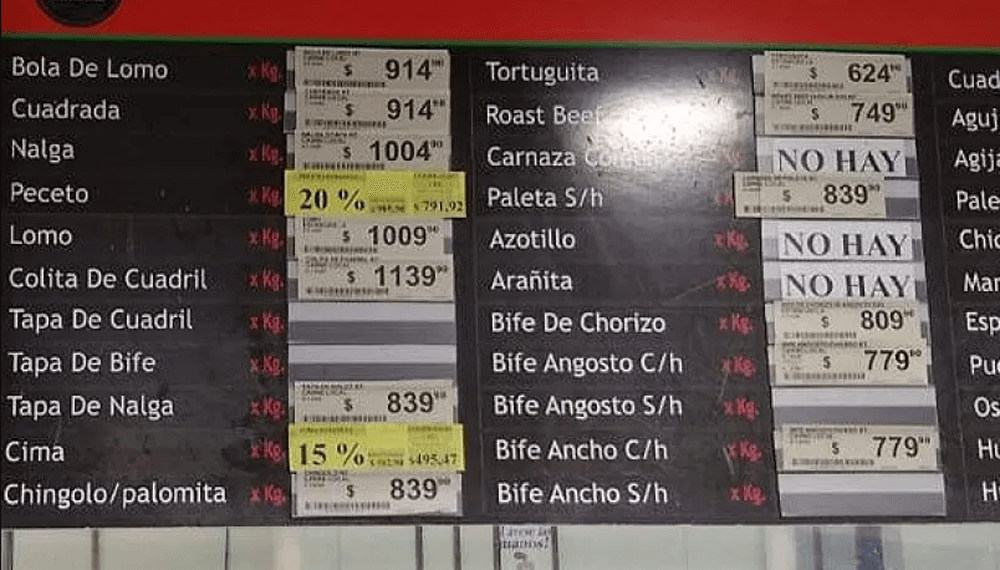 Bola De Lomo x Kg. $ 914⁹⁰
Cuadrada x Kg. $ 914⁹⁰
Nalga x Kg. $ 1004⁹⁰
Peceto x Kg. 20 % $791,92
Lomo x Kg. $ 1009⁹⁰
Colita De Cuadril x Kg. $ 1139⁹⁰
Tapa De Cuadril x Kg.
Tapa De Bife x Kg.
Tapa De Nalga x Kg. $ 839⁹⁰
Cima x Kg. 15 % $495,47
Chingolo/palomita x Kg. $ 839⁹⁰
Tortuguita x Kg. $ 624⁹⁰
Roast Beef $ 749⁹⁰
Carnaza NO HAY
Paleta S/h $ 839⁹⁰
Azotillo x Kg. NO HAY
Arañita x Kg. NO HAY
Bife De Chorizo x Kg. $ 809⁹⁰
Bife Angosto C/h x Kg. $ 779⁹⁰
Bife Angosto S/h x Kg.
Bife Ancho C/h x Kg. $ 779⁹⁰
Bife Ancho S/h x Kg.
Cuad
Aguj
Agij
Pale
Chic
Mar
Esp
Puc
Os
Hu
H
manos!